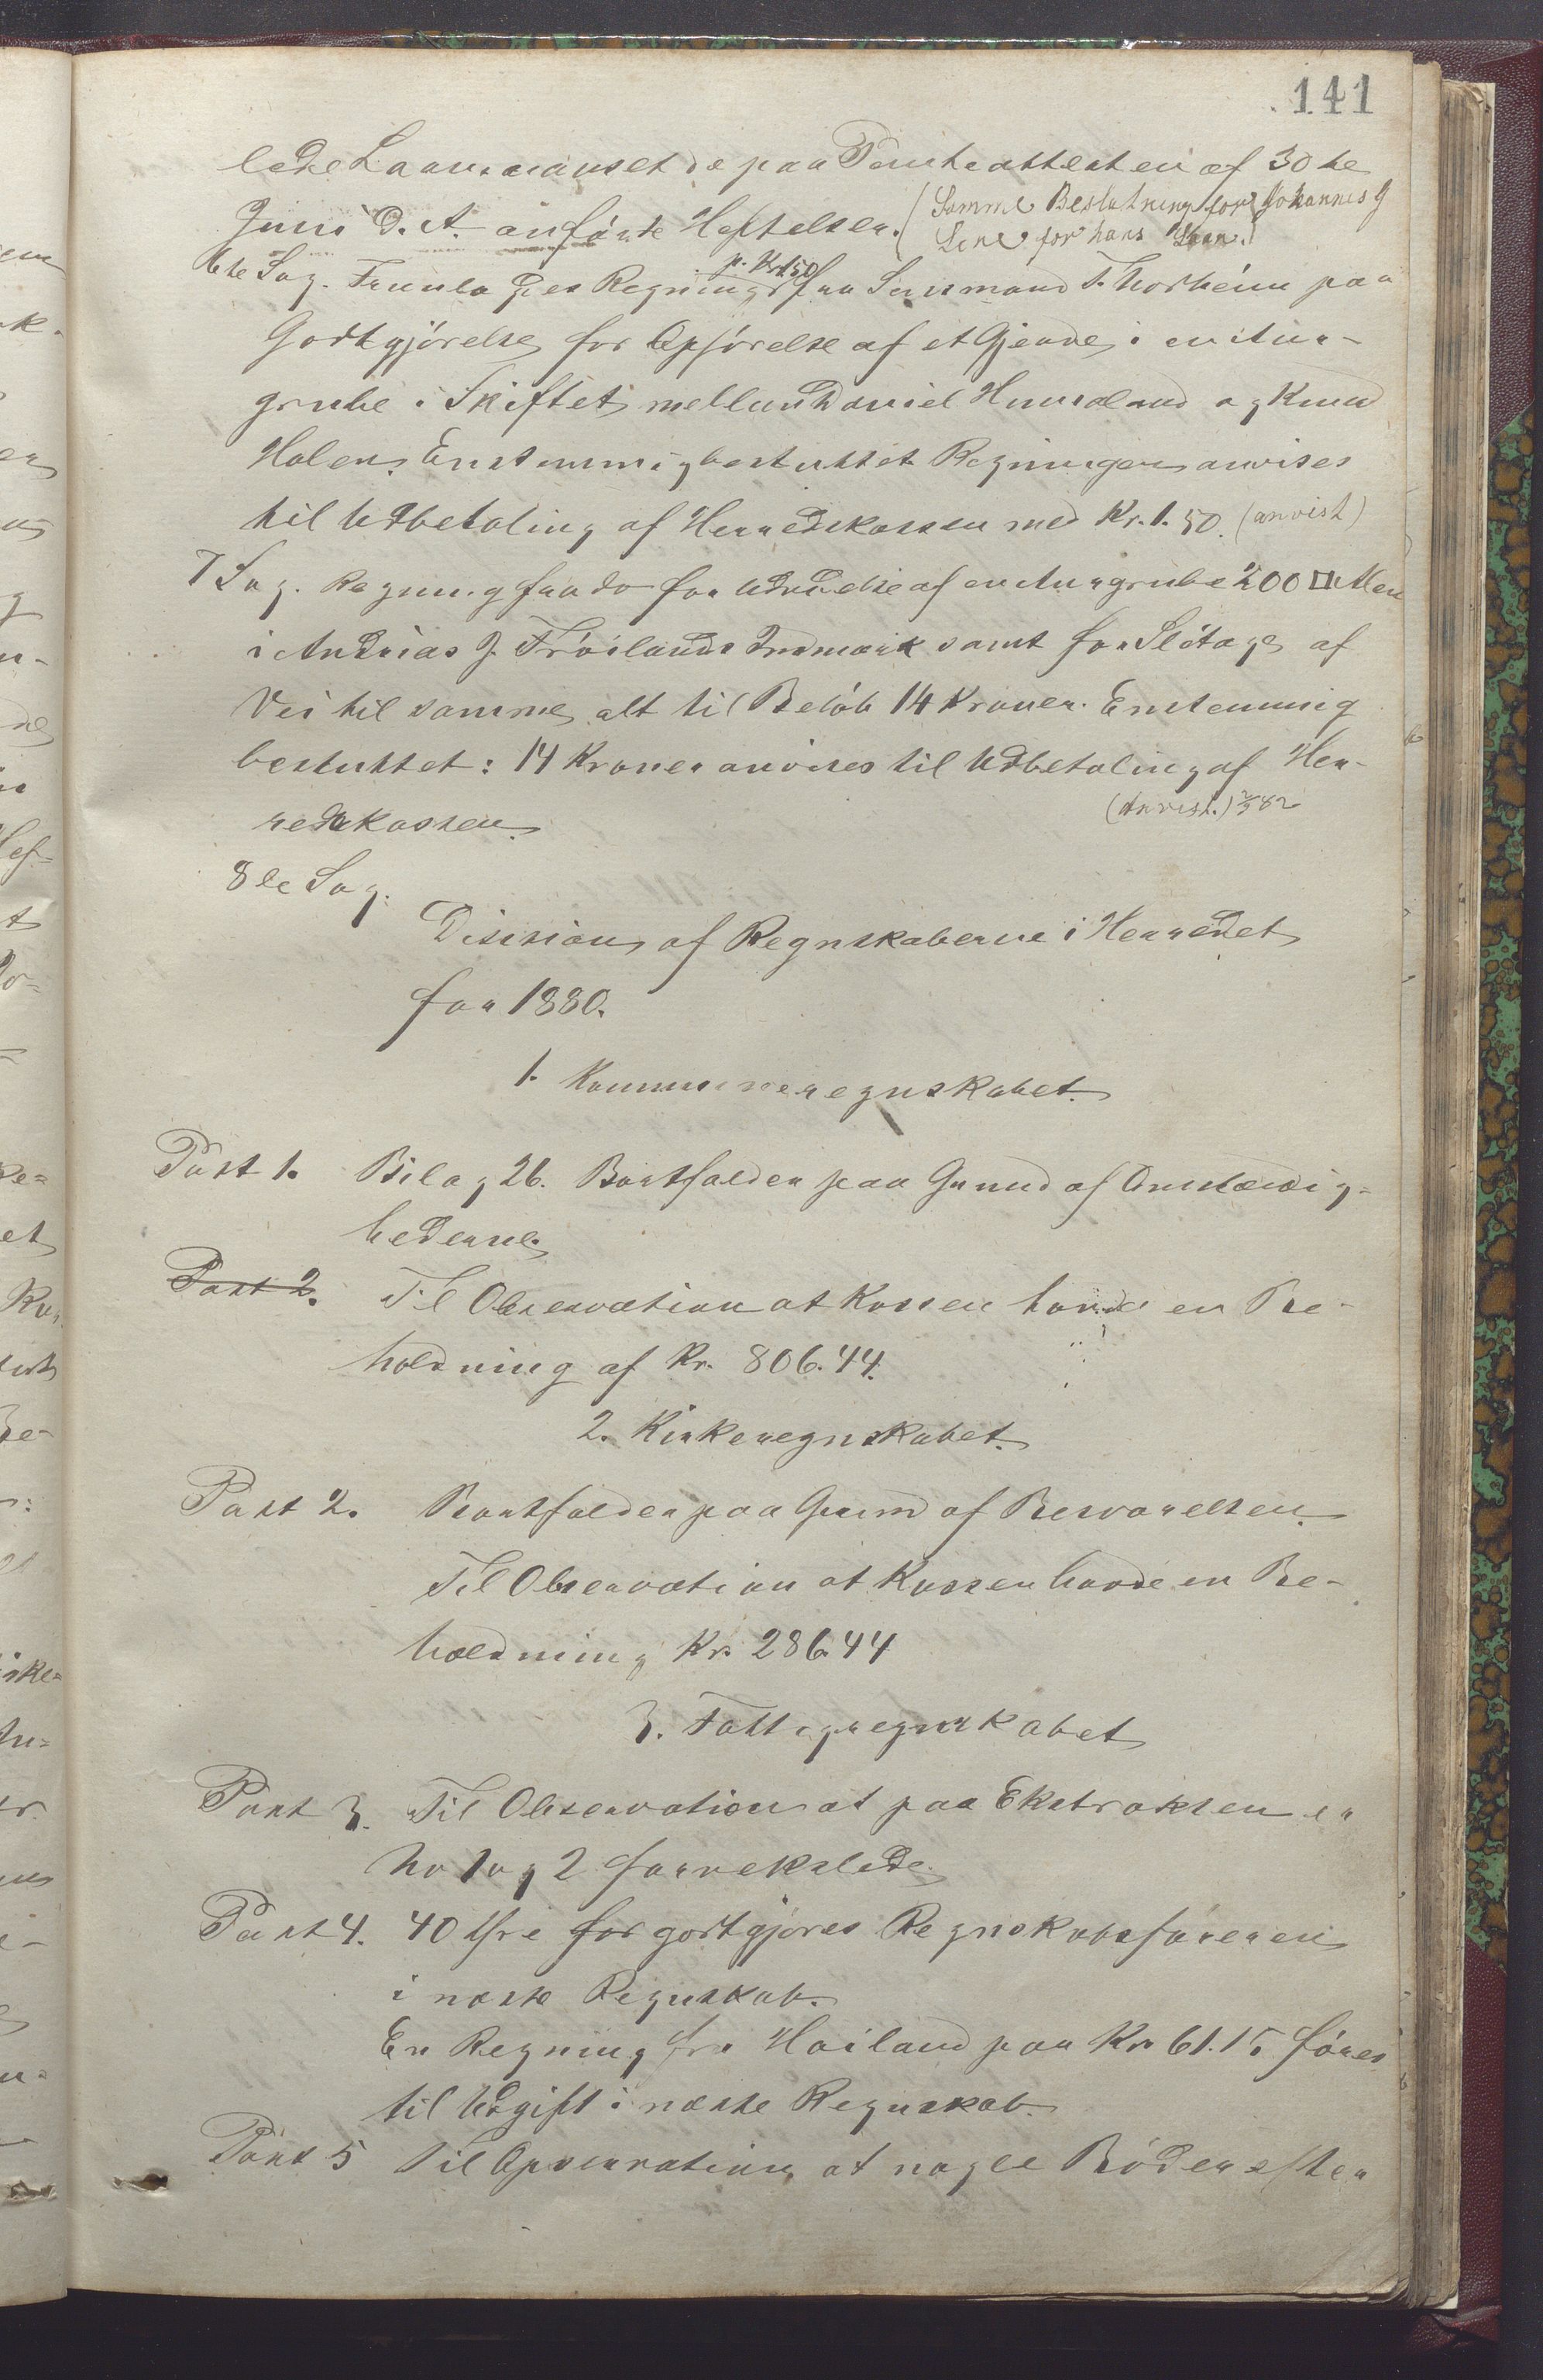 141
lede Laan uanset de paa Panteattesten af 30te
Juni d. A. anförte Heftelser. (Samme Beslutning for Johannes J
Lene for hans Laan.)
6te Sag. Fremlagdes Regning p. Kr 1.50 fra Lensmand T. Thorheim paa
Godtgjörelse for Opförelse af et Gjerde i en Aur-
grube i Skiftet mellem Daniel Hummeland og Knud
Holen. Enstemmig besluttet Regningen anvises
til Udbetaling af Herredskassen med Kr. 1.50. (anvist)
7 Sag. Regning fra do for Udvidelse af en Aurgrube 200 □ Alen
i Andrias J. Fröilands Indmark samt for Slitage af
Vei til samme, alt til Belöb 14 Kroner. Enstemmig
besluttet: 14 Kroner anvises til Udbetaling af Her-
redskassen. (Anvist.) 2/3 82
8de Sag.
Desision af Regnskaberne i Herredet
for 1880.
1. Kommuneregnskabet.
Post 1. Bilag 26. Bortfalder paa Grund af Omstændig-
hederne.
Post 2. Til Observation at Kassen havde en Be-
holdning af Kr. 806.44.
2. Kirkeregnskabet.
Post 2. Bortfalder paa Grund af Besvarelsen.
Til Observation at Kassen havde en Be-
holdning Kr. 286.44
3. Fattigregnskabet
Post 3. Til Observation at paa Ekstrakten er
No 1 og 2 forvekslede.
Post 4. 40 Öre for godtgjöres Regnskabsföreren
i næste Regnskab.
En Regning fra Hoiland paa Kr 61.15 föres
til Udgift i næste Regnskab.
Post 5 Til Opservation at nogle Böder efter